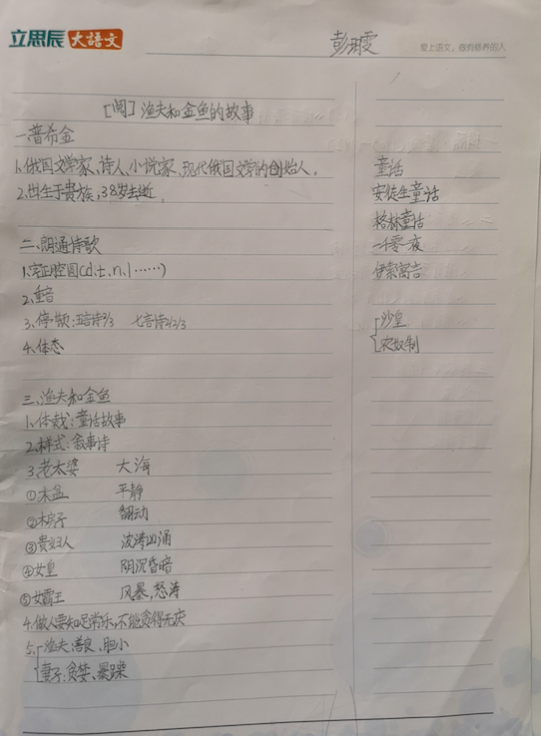 立思辰大语文
爱上语文，做有修养的人
[闻] 渔夫和金鱼的故事
一.普希金
1.俄国文学家、诗人、小说家、现代俄国文学的创始人.
2.出生于贵族,38岁去逝.
二、朗通诗歌
1.字正腔圆(d.t、n、l……)
2.重音
3、停顿:五言诗2/3 七言诗2/2/3
4、体态
三、渔夫和金鱼
1、体裁:童话故事
2.样式:叙事诗
3.老太婆 大海
①木盆 平静
②木房子 翻动
③贵妇人 波涛汹涌
④女皇 阴沉昏暗
⑤女霸王 风暴,怒涛
4.做人要知足常乐,不能贪得无厌
5、渔夫:善良、胆小
妻子:贪婪、暴躁
童话
安徒生童话
格林童话
一千零一夜
伊索寓言
沙皇
农奴制